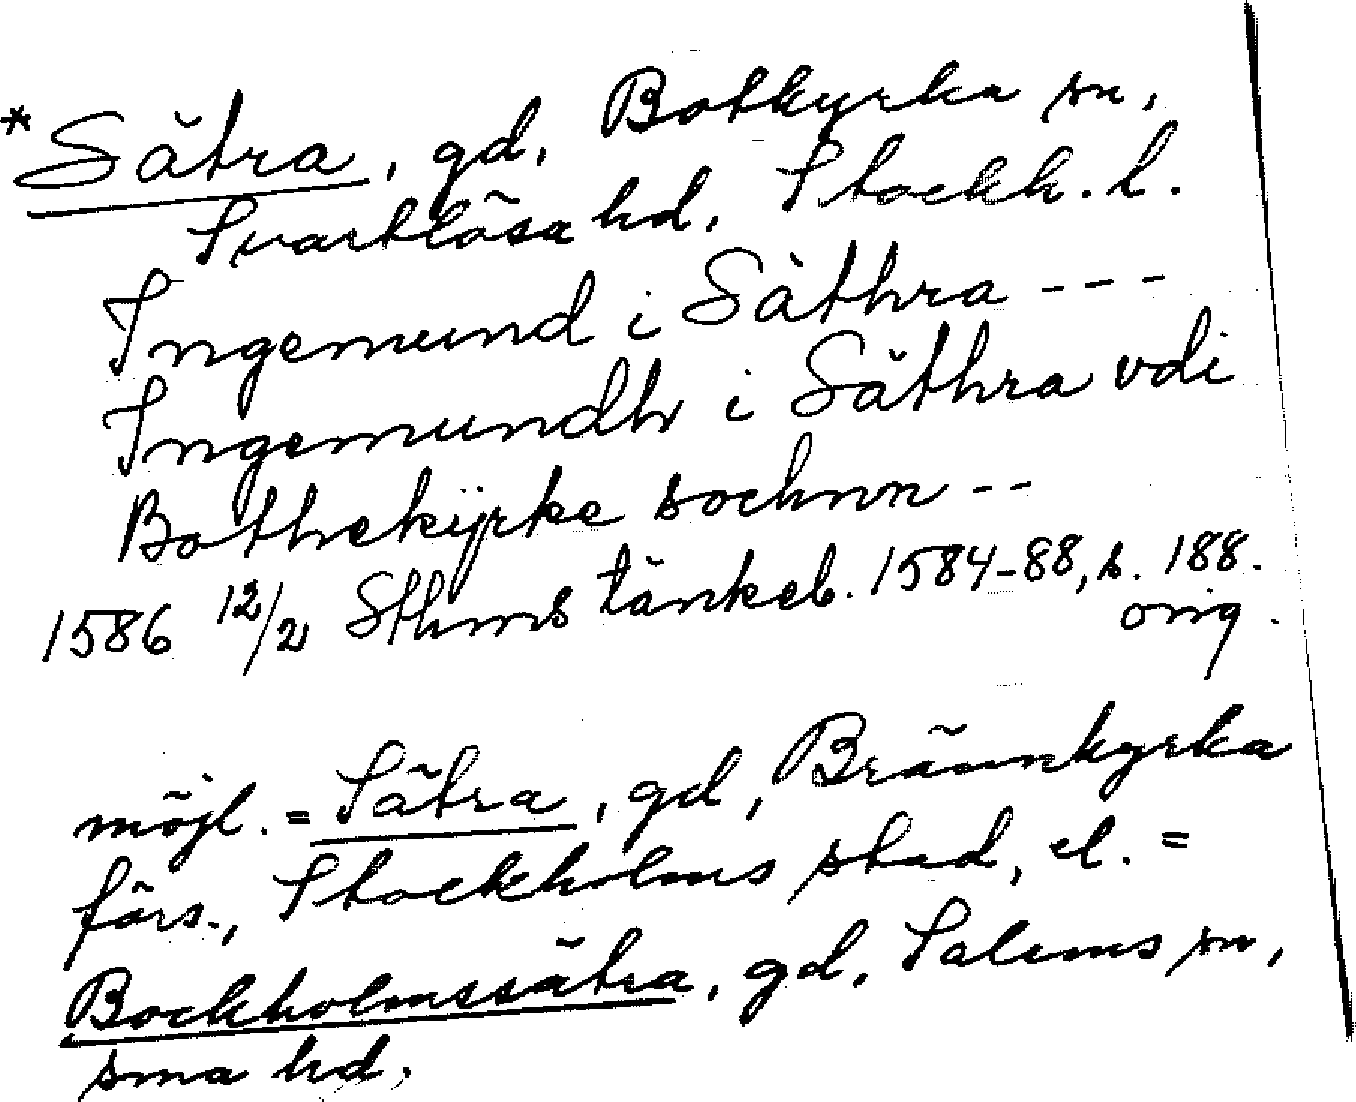 * Sätra, gd, Botkyrka sn,
Svartlösa hd, Stockh. l.
Ingemund i Säthra ---
Ingemundh i Säthra vdi
Bothekÿrke sochnn --
1586 12/2 Sthms tänkeb. 1584-88, s. 188.
orig.
möjl. = Sätra, gd, Brännkyrka
förs., Stockholms stad, el. =
Bockholmssätra, gd, Salems sn,
sma hd.